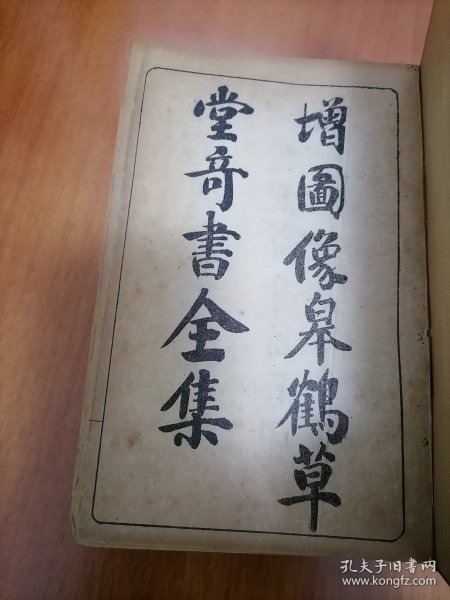 增圖像皋鶴草
堂奇書全集
孔夫子旧书网
www.kongfz.com